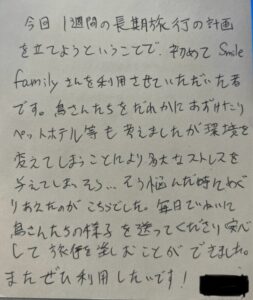 今回1週間の長期旅行の計画
を立てようということで、初めてSmile
familyさんを利用させていただいた者
です。鳥さんたちをだれかにあずけたり
ペットホテル等も考えましたが環境を
変えてしまうことにより多大なストレスを
与えてしまいそう…そう悩んだ時にめぐ
りあえたのがこちらでした。毎日ていねいに
鳥さんたちの様子を送ってくださり安心
して旅行を楽しむことができました。
またぜひ利用したいです!